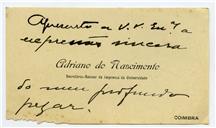 Apresenta a V. Exª a
expressão sincera
Adriano do Nascimento
Secretario-Revisor da Imprensa da Universidade
do meu profundo
pezar.
COIMBRA